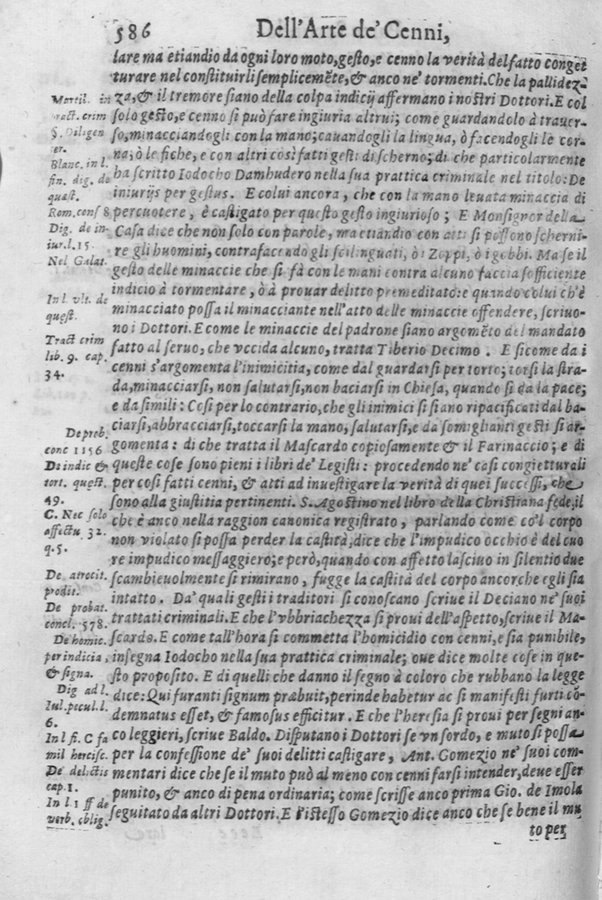 586 Dell'Arte de' Cenni,
lare ma etiandio da ogni loro moto, gesto, e cenno la verità del fatto conget
turare nel constituirli semplicemẽte, & anco ne' tormenti. Che la pallidez-
za, & il tremore siano della colpa indicij affermano i nostri Dottori. E col
solo gesto, e cenno si può fare ingiuria altrui; come guardandolo à trauer-
so, minacciandogli con la mano; cauandogli la lingua, ò facendogli le cor-
na, ò le fiche, e con altri così fatti gesti di scherno; di che particolarmente
ha scritto Iodocho Dambudero nella sua prattica criminale nel titolo: De
iniurijs per gestus. E colui ancora, che con la mano leuata minaccia di
percuotere, è castigato per questo gesto ingiurioso; E Monsignor della
Casa dice che non solo con parole, ma etiandio con atti si possono scherni-
re gli huomini, contrafacendo gli scilinguati, ò i Zoppi, ò i gobbi. Ma se il
gesto delle minaccie che si fà con le mani contra alcuno faccia sofficiente
indicio à tormentare, ò à prouar delitto premeditato: e quando colui ch'è
minacciato possa il minacciante nell'atto delle minaccie offendere, scriuo-
no i Dottori. E come le minaccie del padrone siano argomẽto del mandato
fatto al seruo, che vccida alcuno, tratta Tiberio Decimo. E sicome da i
cenni s'argomenta l'inimicitia, come dal guardarsi per torto; torsi la stra-
da, minacciarsi, non salutarsi, non baciarsi in Chiesa, quando si da la pace;
e da simili: Così per lo contrario, che gli inimici si siano ripacificati dal ba-
ciarsi, abbracciarsi, toccarsi la mano, salutarsi, e da somiglianti gesti si ar-
gomenta: di che tratta il Mascardo copiosamente & il Farinaccio; e di
queste cose sono pieni i libri de' Legisti: procedendo ne' casi congietturali
per così fatti cenni, & atti ad inuestigare la verità di quei successi, che
sono alla giustitia pertinenti. S. Agostino nel libro della Christiana fede, il
che è anco nella raggion canonica registrato, parlando come co'l corpo
non violato si possa perder la castità, dice che l'impudico occhio è del cuo
re impudico messaggiero; e però, quando con affetto lasciuo in silentio due
scambieuolmente si rimirano, fugge la castità del corpo ancorche egli sia
intatto. Da' quali gesti i traditori si conoscano scriue il Deciano ne' suoi
trattati criminali. E che l'vbbriachezza si proui dell'aspetto, scriue il Ma-
scardo. E come tall'hora si commetta l'homicidio con cenni, e sia punibile,
insegna Iodocho nella sua prattica criminale; oue dice molte cose in que-
sto proposito. E di quelli che danno il segno à coloro che rubbano la legge
dice: Qui furanti signum præbuit, perinde habetur ac si manifesti furti cõ-
demnatus esset, & famosus efficitur. E che l'heresia si proui per segni an-
co leggieri, scriue Baldo. Disputano i Dottori se vn sordo, e muto si possa
per la confessione de' suoi delitti castigare, Ant. Gomezio ne' suoi com-
mentari dice che se il muto può al meno con cenni farsi intender, deue esser
punito, & anco di pena ordinaria; come scrisse anco prima Gio. de Imola
seguitato da altri Dottori. E l'istesso Gomezio dice anco che se bene il mu
to per
Marsil. in
pract. crim
S. Diligen
ter.
Blanc. in l.
fin. dig. de
quæst.
Rom. cons 8
Dig. de in-
iur. l. 15.
Nel Galat.
In l. vlt. de
quæst.
Tract crim
lib. 9. cap.
34.
De prob.
conc 1156
De indic &
tort. quæst.
49.
C. Nec solo
affectu 32.
q. 5.
De atrocit.
prodit.
De probat.
concl. 578.
De homic.
per indicia,
& signa.
Dig ad l.
Iul. pecul. l.
6.
In l fi. C fa
mil hercisc.
De delictis
cap. 1.
In l 1 ff de
verb. oblig.